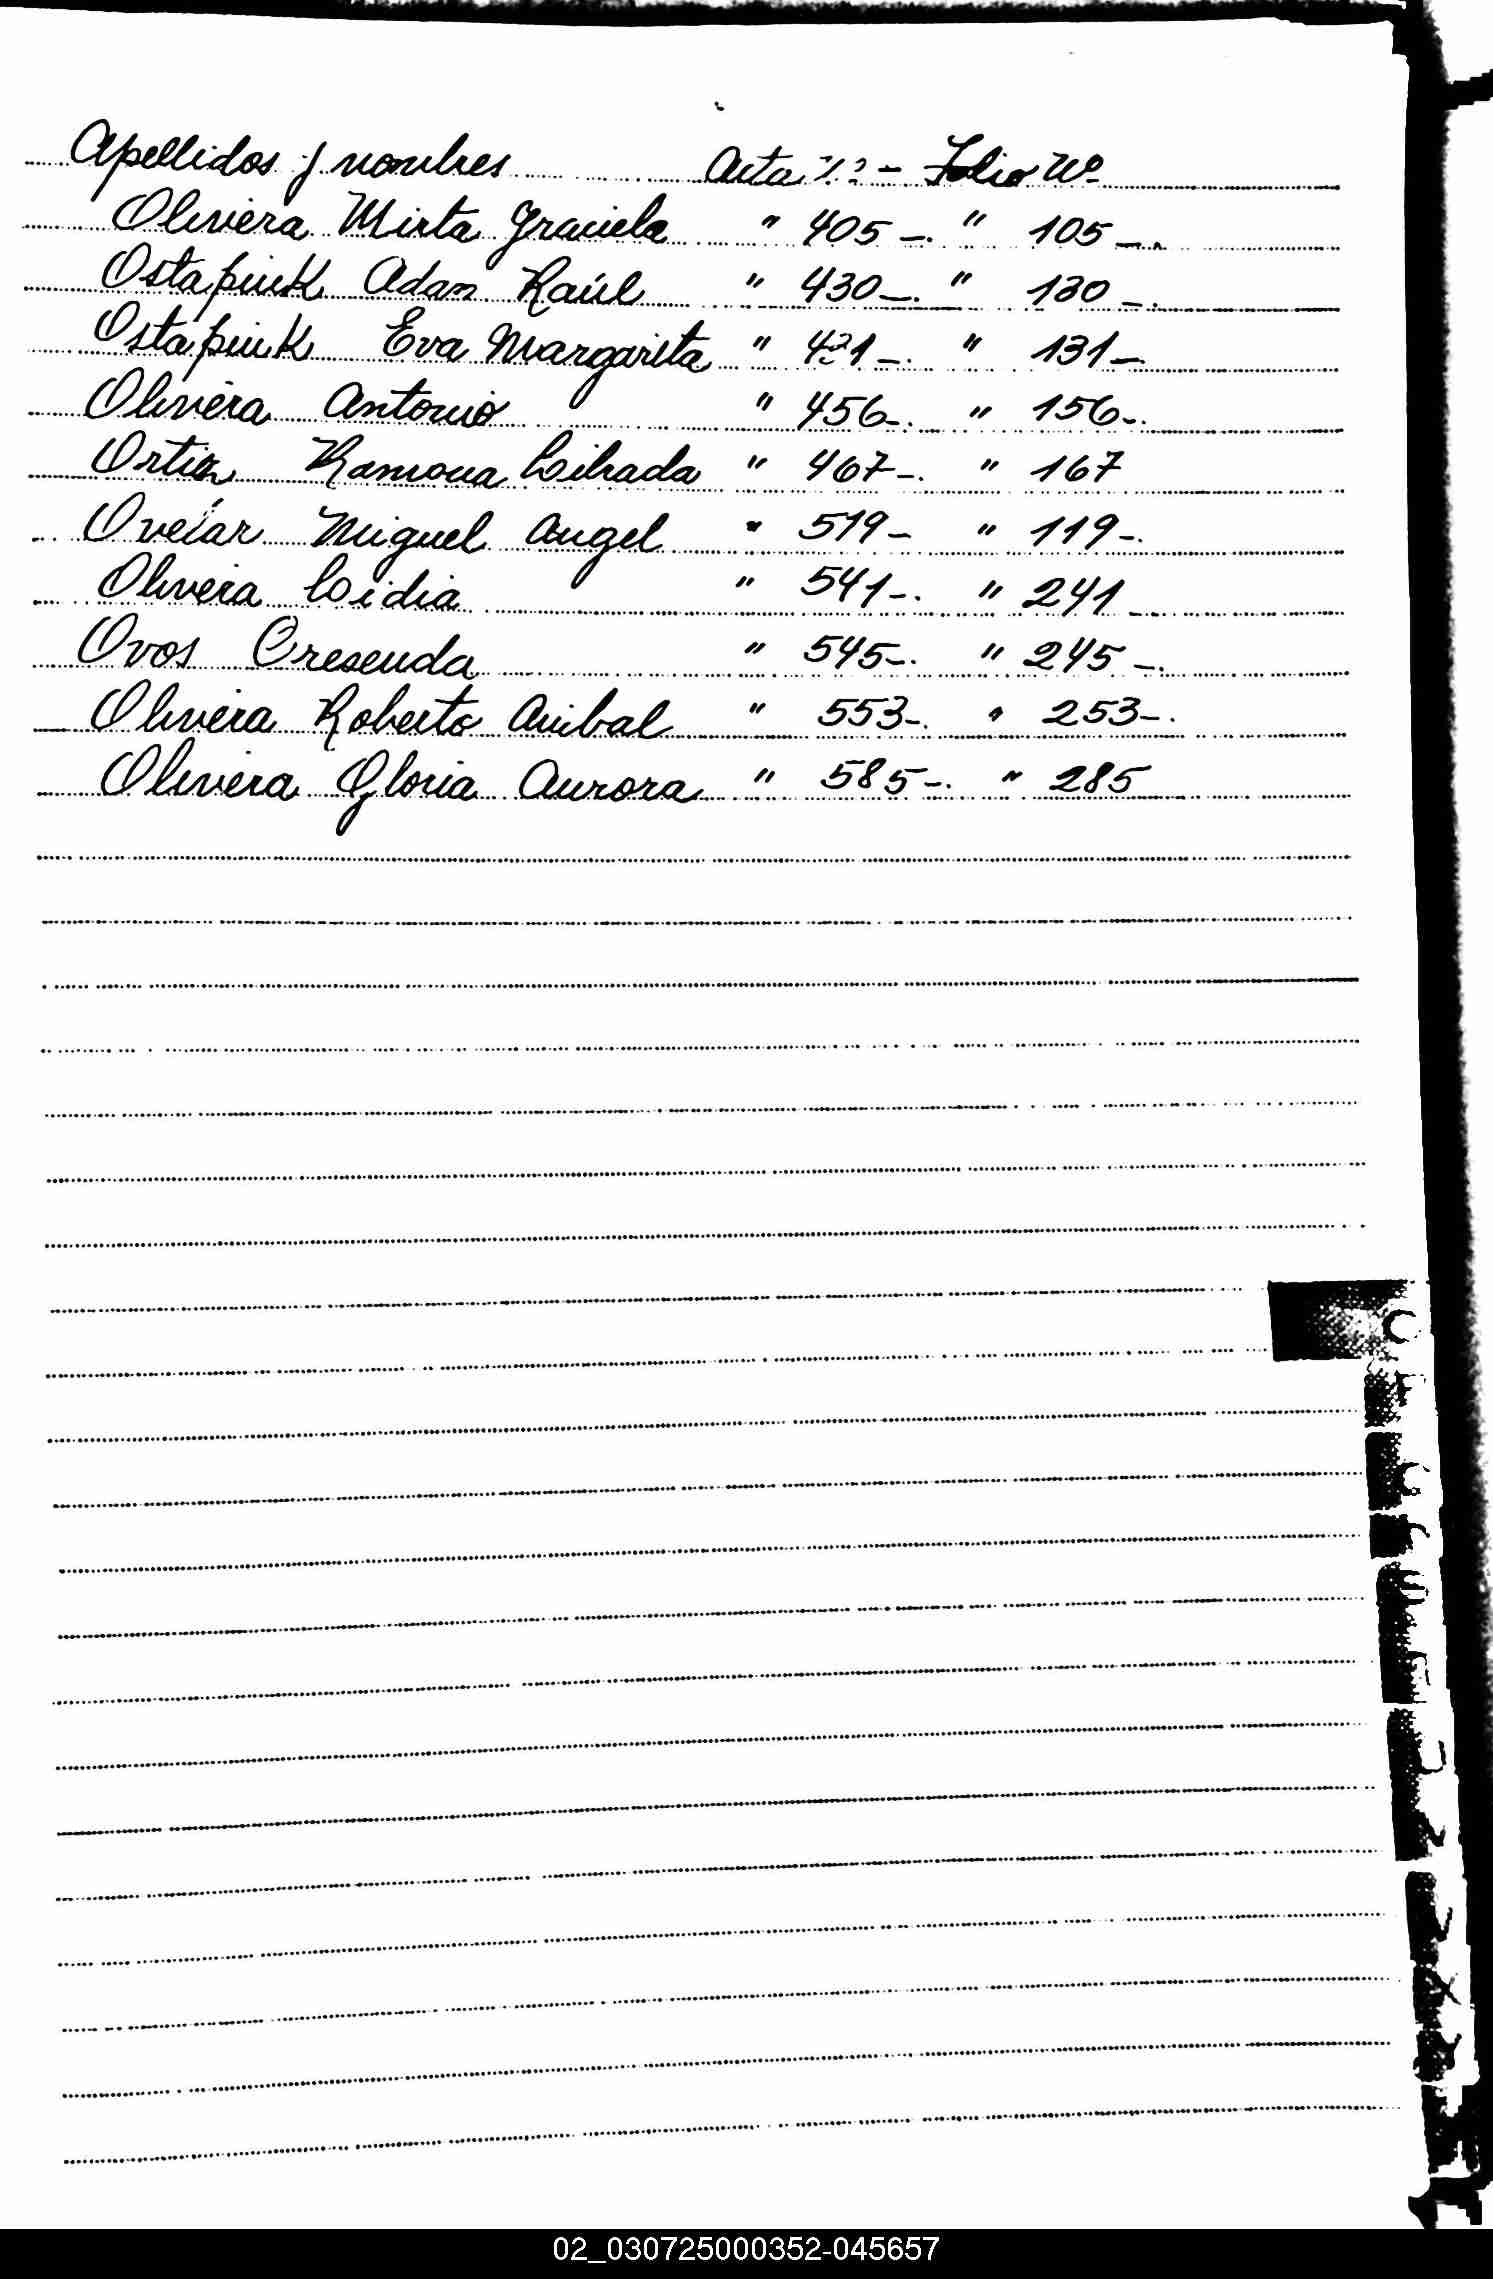 Apellidos y nombres Acta Nº - Folio Nº
Olivera Mirta Graciela " 405 -. " 105 -.
Ostapiuk Adan Raúl " 430 -. " 130 -.
Ostapiuk Eva Margarita " 431 -. " 131 -
Olivera Antonio " 456 -. " 156 -.
Ortiz Ramona Librada " 467 -. " 167
Ovelar Miguel Angel " 519 - " 119 -.
Olivera Lidia " 541 -. " 241
Ovos Cresenda " 545 -. " 245 -.
Olivera Roberto Anibal " 553 -. " 253 -.
Olivera Gloria Aurora " 585 -. " 285
02_030725000352-045657